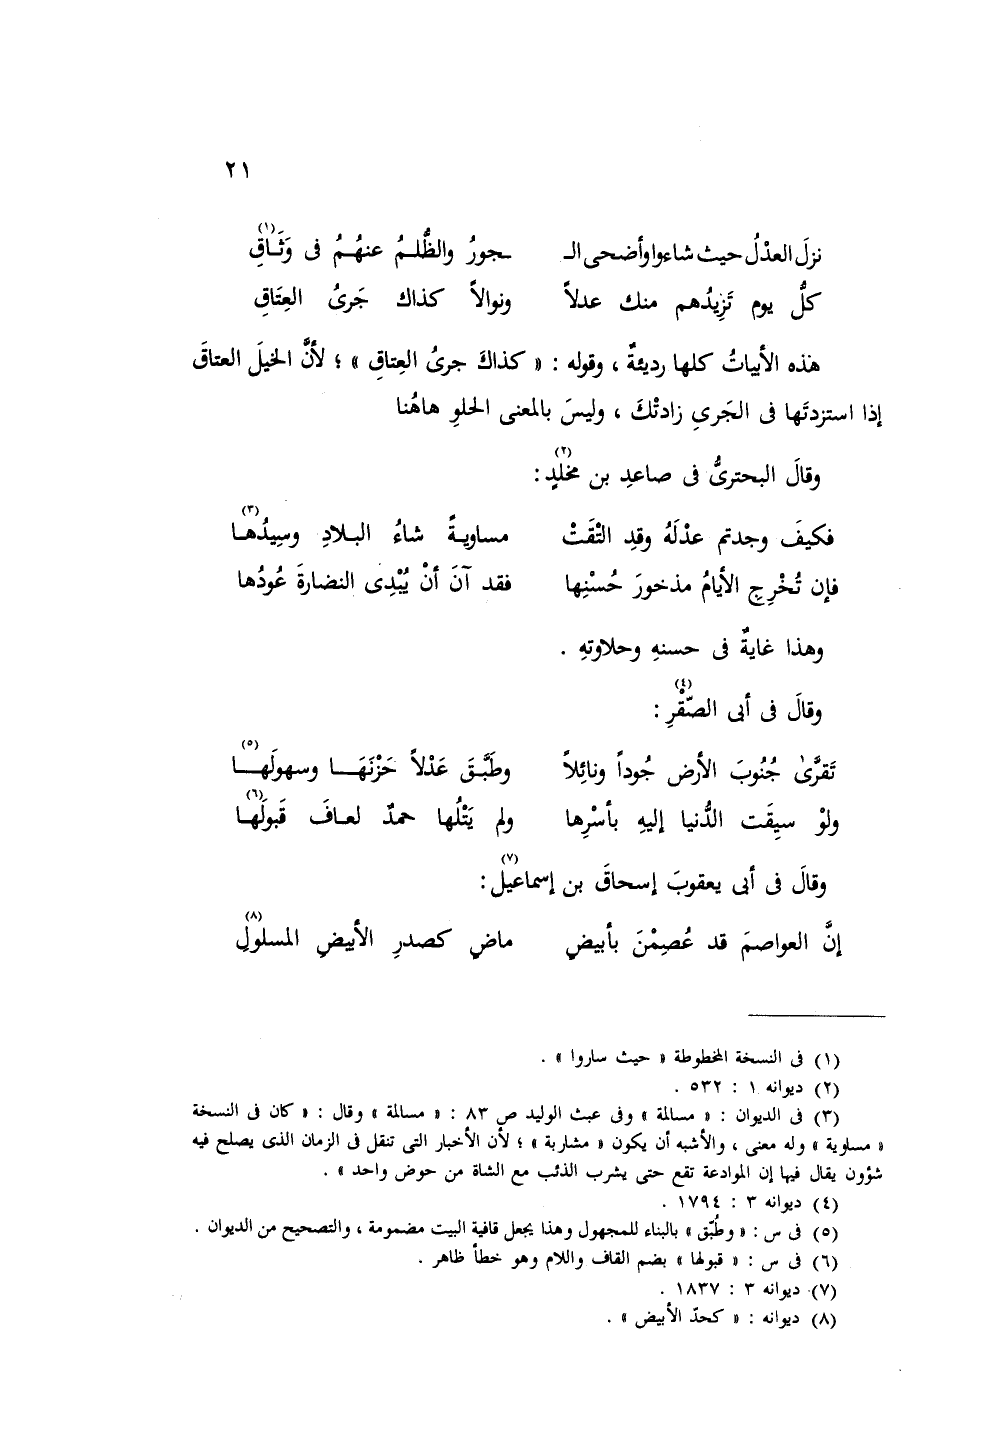 ٢١
نزلَ العدْلُ حيث شاءوا وأضحى الـ ـجورُ والظُّلـمُ عنهُـمُ فى وَثَـاقِ (١)
كلُّ يوم تَزِيدُهم منك عدلاً ونوالاً كذاك جَرىُ العِتَاقِ
هذه الأبياتُ كلها رديئةٌ ، وقوله : « كذاكَ جرىُ العِتاقِ » ؛ لأنَّ الخيلَ العتاقَ
إذا استزدتَها فى الجَرىِ زادتْكَ ، وليسَ بالمعنى الحلوِ هاهُنا
وقالَ البحترىُّ فى صاعدِ بن مخلدٍ (٢) :
فكيفَ وجدتم عدْلَهُ وقدِ التْقَتْ مساويـةً شاءُ البـلادِ وسِيدُهـا (٣)
فإن تُخْرِجِ الأيامُ مذخورَ حُسْنِها فقد آنَ أنْ يُبْدِى النضارةَ عُودُها
وهذا غايةٌ فى حسنهِ وحلاوتهِ .
وقالَ فى أبى الصّقْرِ (٤) :
تَقرَّىٰ جُنُوبَ الأرض جُوداً ونائِلاً وطَبَّـقَ عَدْلاً حَزْنَهَـا وسهولَهـا (٥)
ولوْ سيِقَت الدُّنيا إليهِ بأسْرِها ولم يَتْلُها حمدٌ لعـافَ قَبولَهـا (٦)
وقالَ فى أبى يعقوبَ إسحاقَ بن إسماعيل (٧) :
إنَّ العواصمَ قد عُصِمْنَ بأبيضٍ ماضٍ كصدرِ الأبيضِ المسلولِ (٨)
(١) فى النسخة المخطوطة « حيث ساروا » .
(٢) ديوانه ١ : ٥٣٢ .
(٣) فى الديوان : « مسالمة » وفى عبث الوليد ص ٨٣ : « مسالمة » وقال : « كان فى النسخة
« مساوية » وله معنى ، والأشبه أن يكون « مشاربة » ؛ لأن الأخبار التى تنقل فى الزمان الذى يصلح فيه
شؤون يقال فيها إن الموادعة تقع حتى يشرب الذئب مع الشاة من حوض واحد » .
(٤) ديوانه ٣ : ١٧٩٤ .
(٥) فى س : « وطُبّق » بالبناء للمجهول وهذا يجعل قافية البيت مضمومة ، والتصحيح من الديوان .
(٦) فى س : « قبولها » بضم القاف واللام وهو خطأ ظاهر .
(٧) ديوانه ٣ : ١٨٣٧ .
(٨) ديوانه : « كحدّ الأبيض » .